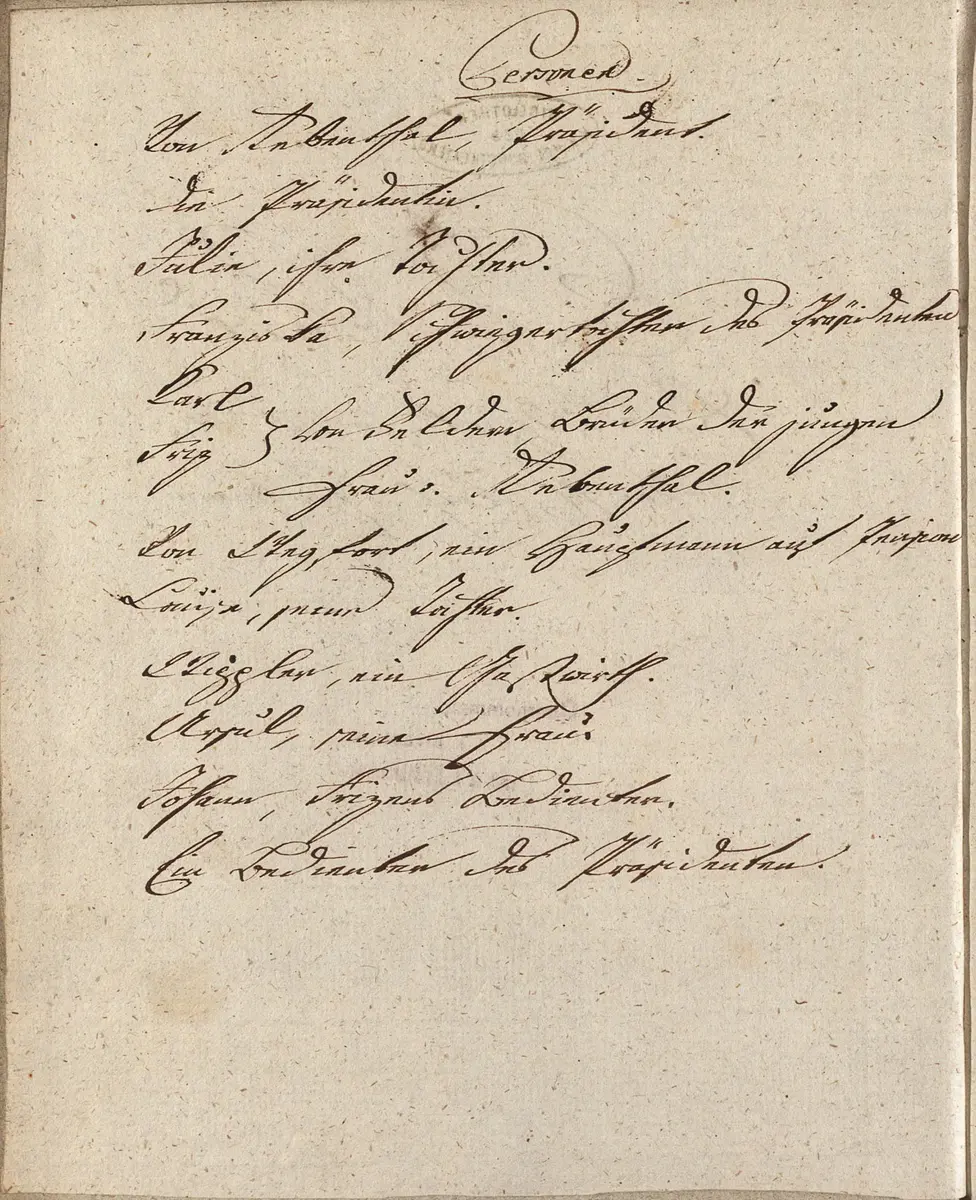 Personen.
Von Rebenthal, Präsident.
die Präsidentin.
Julie, ihre Tochter.
Franziska, Schwiegertochter des Präsidenten
Karl
Friz } von Feldern, Brüder der jungen
Frau v. Rebenthal.
Von Wegfort, ein Hauptmann auf Pension
Louise, seine Tochter.
Wippler, ein Gastwirth.
Ursul, seine Frau.
Johann, Frizens Bedienter.
Ein Bedienter des Präsidenten.